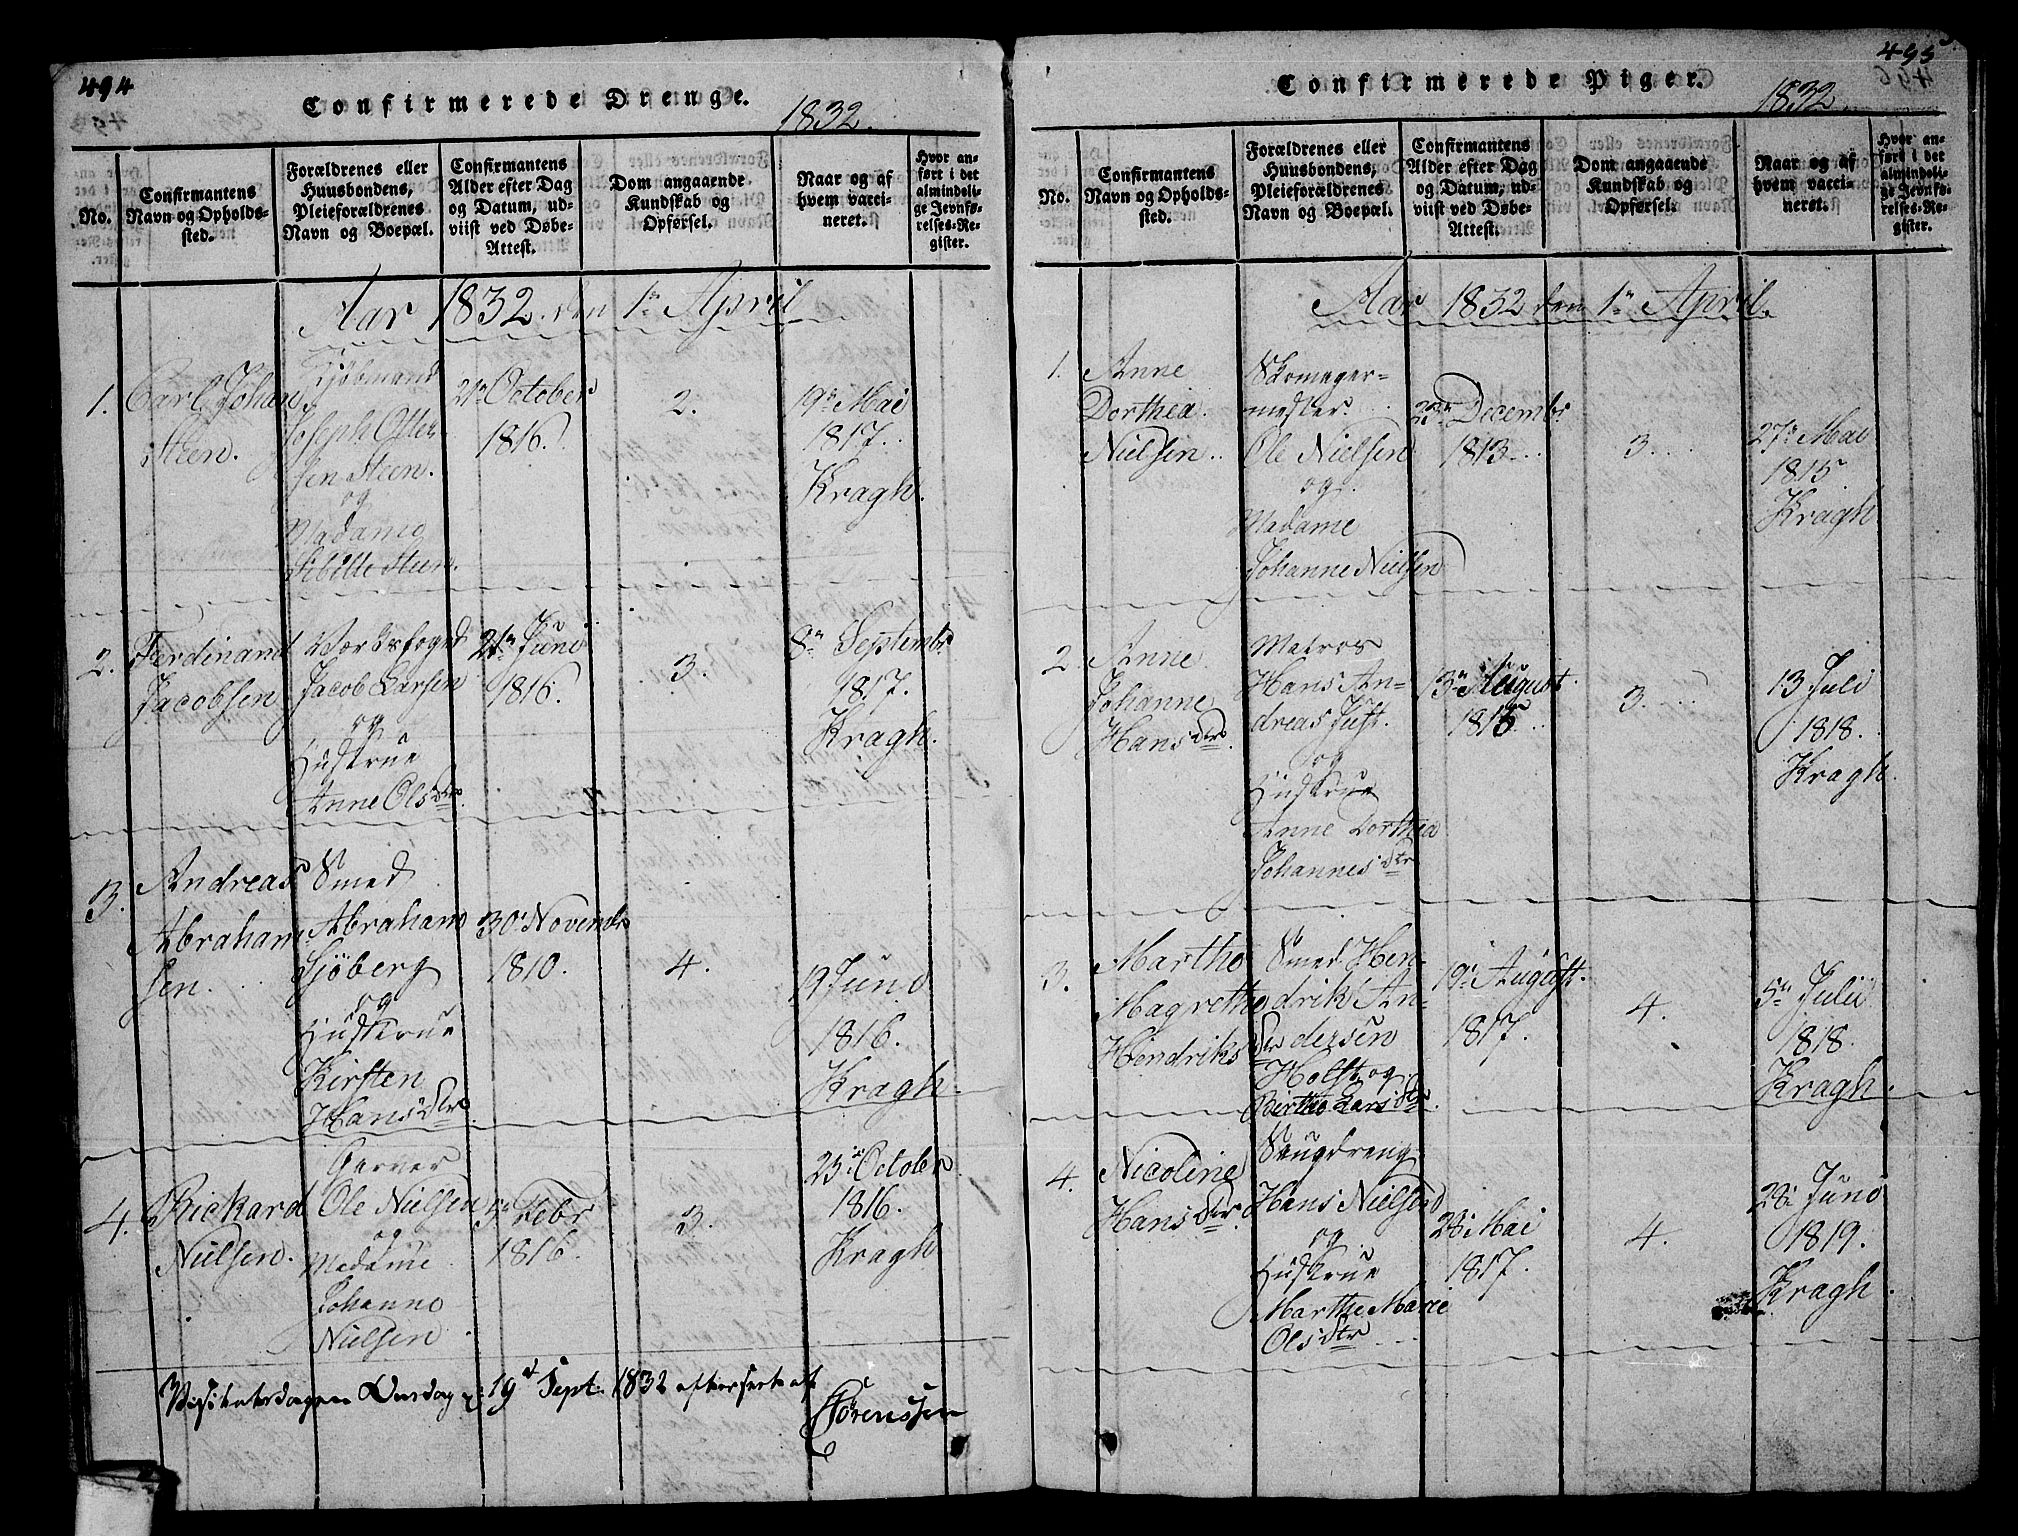 494
Confirmerede Drenge.
1832.
No.
Confirmantens Navn og Opholdssted.
Forældrenes eller Huusbondens, Pleieforældrenes Navn og Boepæl.
Confirmantens Alder efter Dag og Datum, udviist ved Døbe-Attest.
Dom angaaende Kundskab og Opførsel.
Naar og af hvem vaccineret.
Hvor anført i det almindelige Jevnførelses-Register.
Aar 1832. den 1te April
1.
Carl Johan
Steen.
Kjøbmand
Joseph Otter
sen Steen.
og
Madame
Sibille Steen.
21n October
1816.
2.
19e Mai
1817.
Kragh.
2.
Ferdinand
Jacobsen
Værksfoged
Jacob Larsen
og
Hustrue
Anne Olsdtr.
21n Juni
1816.
3.
8n Septembr
1817.
Kragh.
3.
Andreas
Abraham-
sen.
Smed
Abraham
Sjöberg
og
Hustrue
Kirsten
Hansdtr
30. Novembr
1810.
4.
19 Juni
1816.
Kragh.
4.
Rickard
Nielsen.
Garver
Ole Nielsen
og
Madame
Johanne
Nielsen
5n Febr
1816.
3.
23. October
1816.
Kragh
Visitatsdagen Onsdag d. 19d Sept. 1832 efterseet af
Sörenssen
495
Confirmerede Piger.
1832.
No.
Confirmantens Navn og Opholdssted.
Forældrenes eller Huusbondens, Pleieforældrenes Navn og Boepæl.
Confirmantens Alder efter Dag og Datum, udviist ved Døbe-Attest.
Dom angaaende Kundskab og Opførsel.
Naar og af hvem vaccineret.
Hvor anført i det almindelige Jevnførelses-Register.
Aar 1832 den 1te April.
1.
Anne
Dorthea
Nielsen
Skomager-
mester
Ole Nielsen
og
Madame
Johanne Nielsen
Decembr
1813
3.
27n Mai
1815.
Kragh
2.
Anne
Johanne
Hansdtr.
Matros
Hans An-
dreas Just.
og
Hustrue
Anne Dorthea
Johannesdtr
13n August
1815
3.
13 Juli
1818.
Kragh.
3.
Marthe
Magrethe
Hendriksdtr
Smed Hen-
drik An-
dersen
Holst og
Berthe Larsdtr.
19n August.
1817.
4.
5n Juli
1818.
Kragh.
4.
Nicoline
Hansdtr.
Saugdreng
Hans Nielsen
og
Hustrue
Marthe Marie
Olsdtr
28. Mai
1817.
4.
28. Juni
1819.
Kragh.